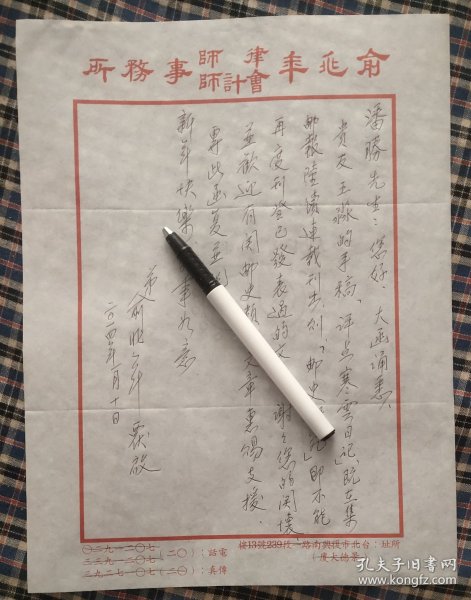 俞兆年律師會計師事務所
潘勝先生：您好，大函誦悉，
貴友王淼的手稿「評点寒雲日記」既在集
郵報陸續連載刊出，則「郵史記」即不能
再度刊登已發表過的文 謝謝您的関懷，
並歡迎有関郵史類文章惠賜支援．
專此函复並
新年快樂、事如意
弟俞兆年覆啟
二〇一四年一月十日
所址：台北市復興南路一段239號13樓
（景德大廈）
電話：（〇二）七〇二一九二〇
傳真：（〇二）
孔夫子旧书网
www.kongfz.com